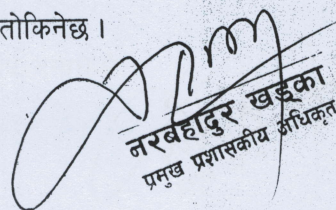 तोकिनेछ ।
नरबहादुर खड्का
प्रमुख प्रशासकीय अधिकृत